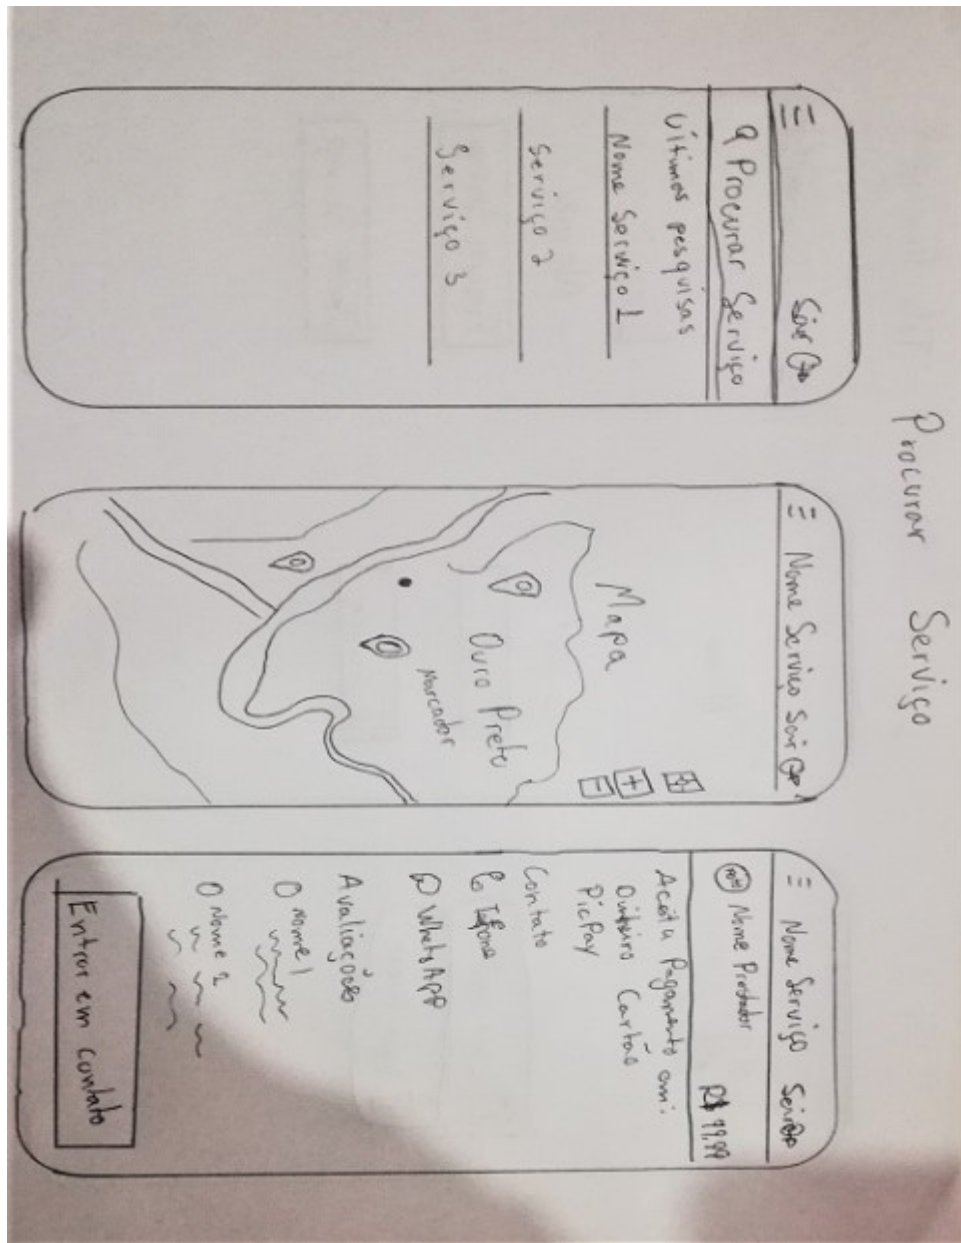 Procurar Serviço
Sair
Procurar Serviço
Últimas pesquisas
Nome Serviço 1
Serviço 2
Serviço 3
Nome Serviço Sair
Mapa
Ouro Preto
Marcador
+
-
Nome Serviço Sair
Nome Prestador
R$ 99,99
Aceita Pagamento em:
Dinheiro Cartão
PicPay
Contato
WhatsApp
Avaliações
Nome 1
Nome 2
Entrar em contato